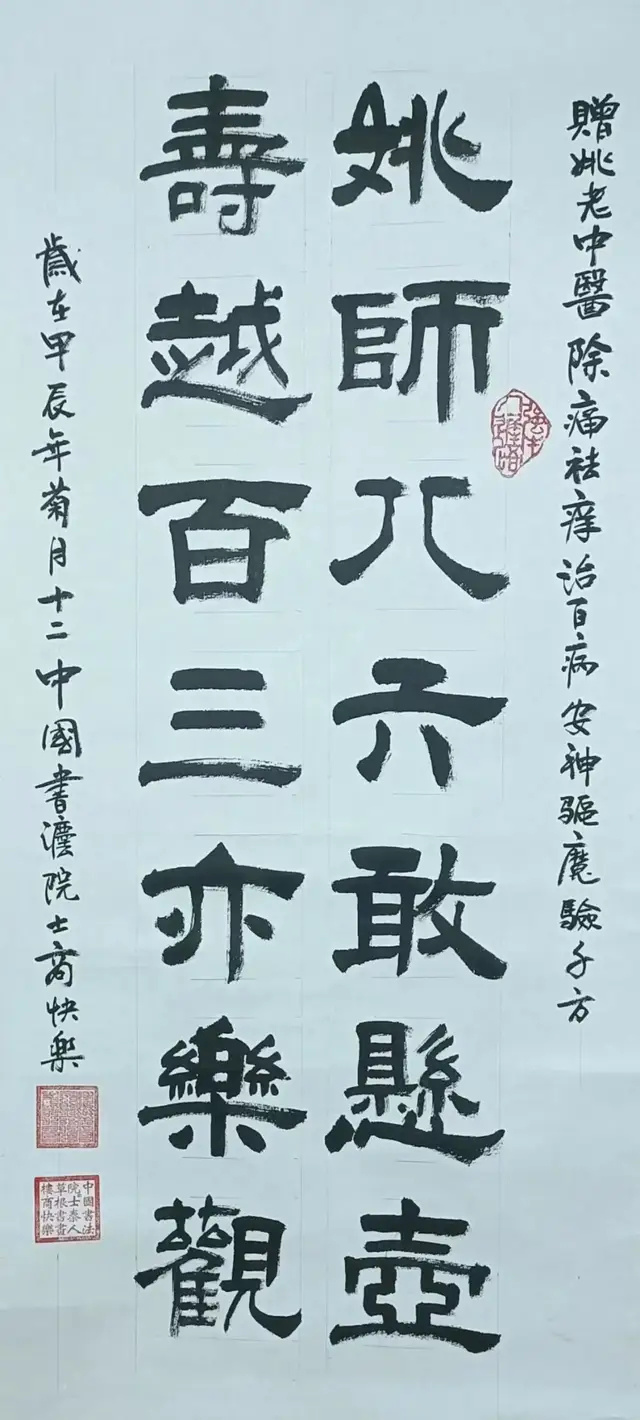 贈姚老中醫除痛祛痒治百病安神驅魔驗千方
姚師八六敢懸壺
壽越百三亦樂觀
歲在甲辰年菊月十二中國書灋院士商快樂
中國書法
院士泰人
草根書畫
樓商快樂